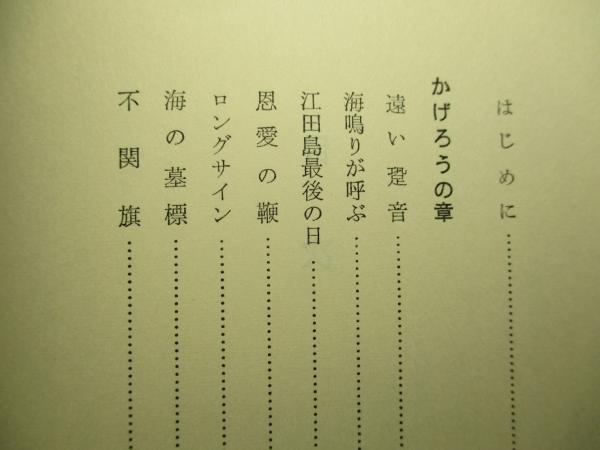 はじめに
かげろうの章
遠い跫音
海鳴りが呼ぶ
江田島最後の日
恩愛の鞭
ロングサイン
海の墓標
不関旗